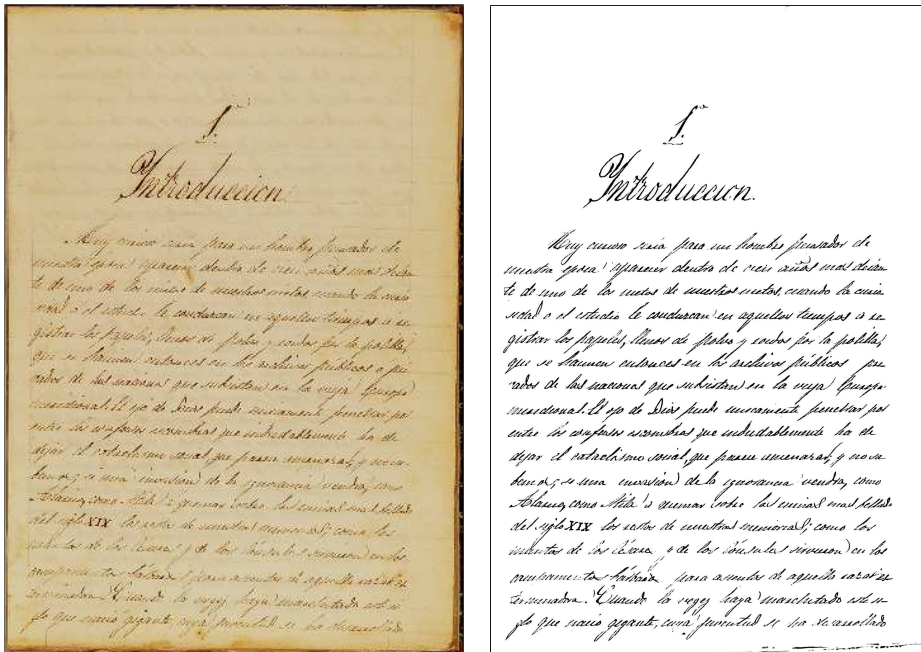 1.
Introduccion.
Muy curioso seria para un hombre pensador de
nuestra epoca aparecer dentro de cien años mas delan-
te de uno de los nietos de nuestros nietos, cuando la curio
sidad o el estudio le conduzcan en aquellos tiempos a re-
gistrar los papeles, llenos de polvo y roidos por la polilla,
que se hacinen entonces en los archivos públicos o pri
vados de las naciones que subsistan en la vieja Europa
meridional. El ojo de Dios puede unicamente penetrar por
entre los confusos escombros que indudablemente ha de
dejar el cataclismo social, que parece amenazar, y no sa-
bemos si una invasion de la ignorancia vendra, como
como Atila a quemar sobre las ruinas mas bellas
del siglo XIX los restos de nuestras memorias; como los
mantos de los Cesares y de los Cónsules sirvieron en los
campamentos bárbaros para asientos de aquella raza ex
terminadora. Cuando la vejez haya marchitado este si-
glo que nacio gigante, cuya juventud se ha desarrollado
1.
Introduccion.
Muy curioso seria para un hombre pensador de
nuestra epoca aparecer dentro de cien años mas delan-
te de uno de los nietos de nuestros nietos, cuando la curio
sidad o el estudio le conduzcan en aquellos tiempos a re-
gistrar los papeles, llenos de polvo y roidos por la polilla,
que se hacinen entonces en los archivos públicos o pri
vados de las naciones que subsistan en la vieja Europa
meridional. El ojo de Dios puede unicamente penetrar por
entre los confusos escombros que indudablemente ha de
dejar el cataclismo social, que parece amenazar, y no sa-
bemos si una invasion de la ignorancia vendra, como
como Atila a quemar sobre las ruinas mas bellas
del siglo XIX los restos de nuestras memorias; como los
mantos de los Cesares y de los Cónsules sirvieron en los
campamentos bárbaros para asientos de aquella raza ex
terminadora. Cuando la vejez haya marchitado este si-
glo que nacio gigante, cuya juventud se ha desarrollado